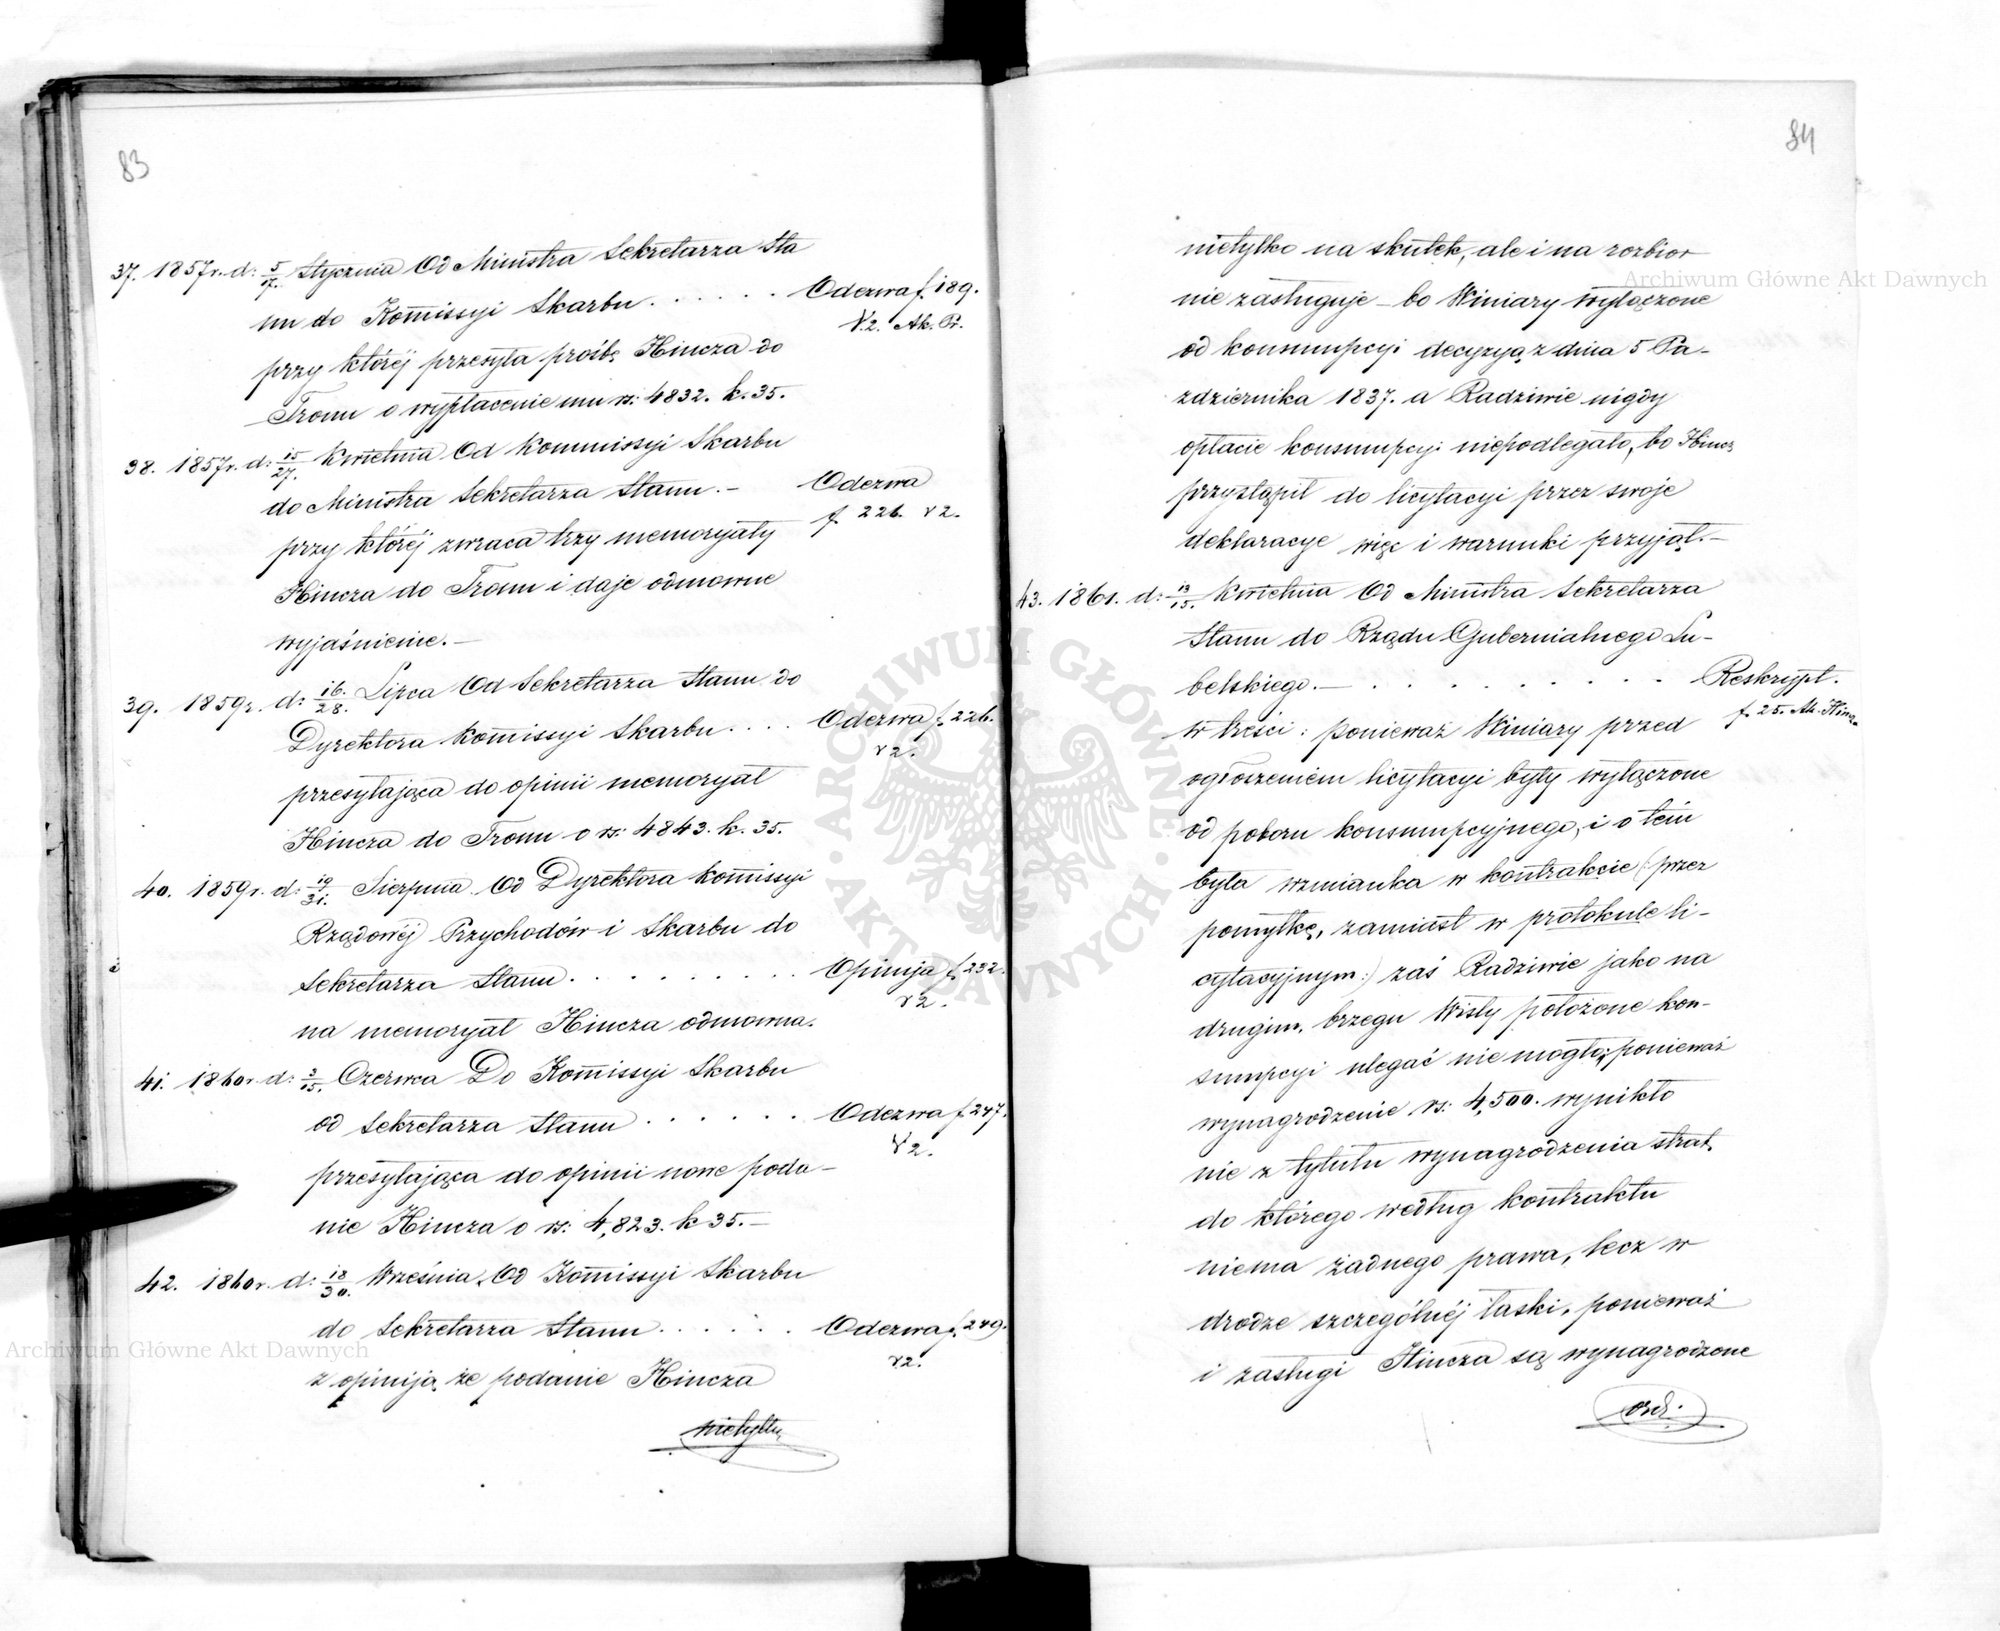 83
37. 1857r. d: 5/17. Stycznia Od Ministra Sekretarza Sta
nu do Komissyi Skarbu . . . . . . Odezwa f. 189.
V.2. Ak. Pr.
przy któréj przesyła prośbę Hincza do
Tronu o wypłacenie mu rs: 4832. k. 35.
38. 1857r. d: 15/27. Kwietnia Od Kommissyi Skarbu
do Ministra Sekretarza Stanu. – Odezwa
f. 226. v2.
przy któréj zwraca trzy memoryały
Hincza do Tronu i daje odmowne
wyjaśnienie. –
39. 1859r. d: 16./28. Lipca Od Sekretarza Stanu do
Dyrektora Komissyi Skarbu . . . . Odezwa f. 226.
v2.
przesyłająca do opinii memoryał
Hincza do Tronu o rs: 4843. k. 35.
40. 1859r. d: 19/31. Sierpnia Od Dyrektora Komissyi
Rządowéj Przychodów i Skarbu do
Sekretarza Stanu . . . . . . . . . Opinija f. 232.
v2.
na memoryał Hincza odmowna.
41. 1860r. d: 3/15. Czerwca Do Komissyi Skarbu
od Sekretarza Stanu . . . . . . Odezwa f. 247.
V2.
przesyłająca do opinii nowe poda–
nie Hincza o rs: 4,823. k 35. –
42. 1860r. d: 18/30. Września. Od Komissyi Skarbu
do Sekretarza Stanu . . . . . . Odezwa f. 249.
v2.
z opiniją że podanie Hincza
nietylko
84
nietylko na skutek, ale i na rozbior
nie zasługuje – bo Winiary wyłączone
od konsumpcyi decyzyą z dnia 5 Pa–
zdziernika 1837. a Radziwie nigdy
opłacie konsumpcyi niepodlegało, bo Hincz
przystąpił do licytacyi przez swoje
deklaracye więc i warunki przyjął. –
43. 1861. d: /15. Kwietnia Od Ministra Sekretarza
Stanu do Rządu Gubernialnego Lu–
belskiego. – . . . . . . . . . Reskrypt.
f. 25. Ak.
w treści: ponieważ Winiary przed
ogłoszeniem licytacyi były wyłączone
od poboru konsumpcyjnego, i o tém
była wzmianka w kontrakcie (: przez
pomyłkę, zamiast w protokule li–
cytacyjnym :) zaś Radziwie jako na
drugim. brzegu Wisły położone kon–
sumpcyi ulegać nie mogło; ponieważ
wynagrodzenie rs: 4,500. wynikło
nie z tytułu wynagrodzenia strat,
do którego według kontraktu
niema żadnego prawa, lecz w
drodze szczególnéj łaski, ponieważ
i zasługi Hincza są wynagrodzone
Archiwum Główne Akt Dawnych
Archiwum Główne Akt Dawnych
ARCHIWUM GŁÓWNE · AKT DAWNYCH ·